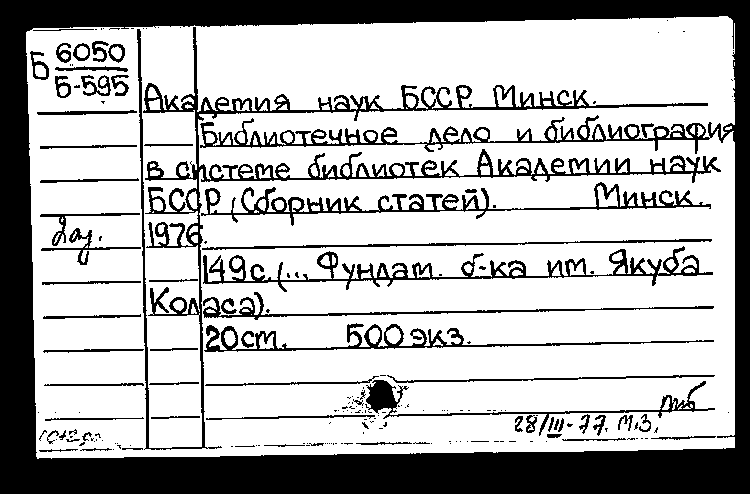 Б 6050
Б-595
Академия наук БССР. Минск.
Библиотечное дело и библиография
в системе библиотек Академии наук
БССР. (Сборник статей). Минск.
1976.
149с. (... Фундам. б-ка им. Якуба
Коласа).
20см. 500 экз.
28/III-77. М.З.